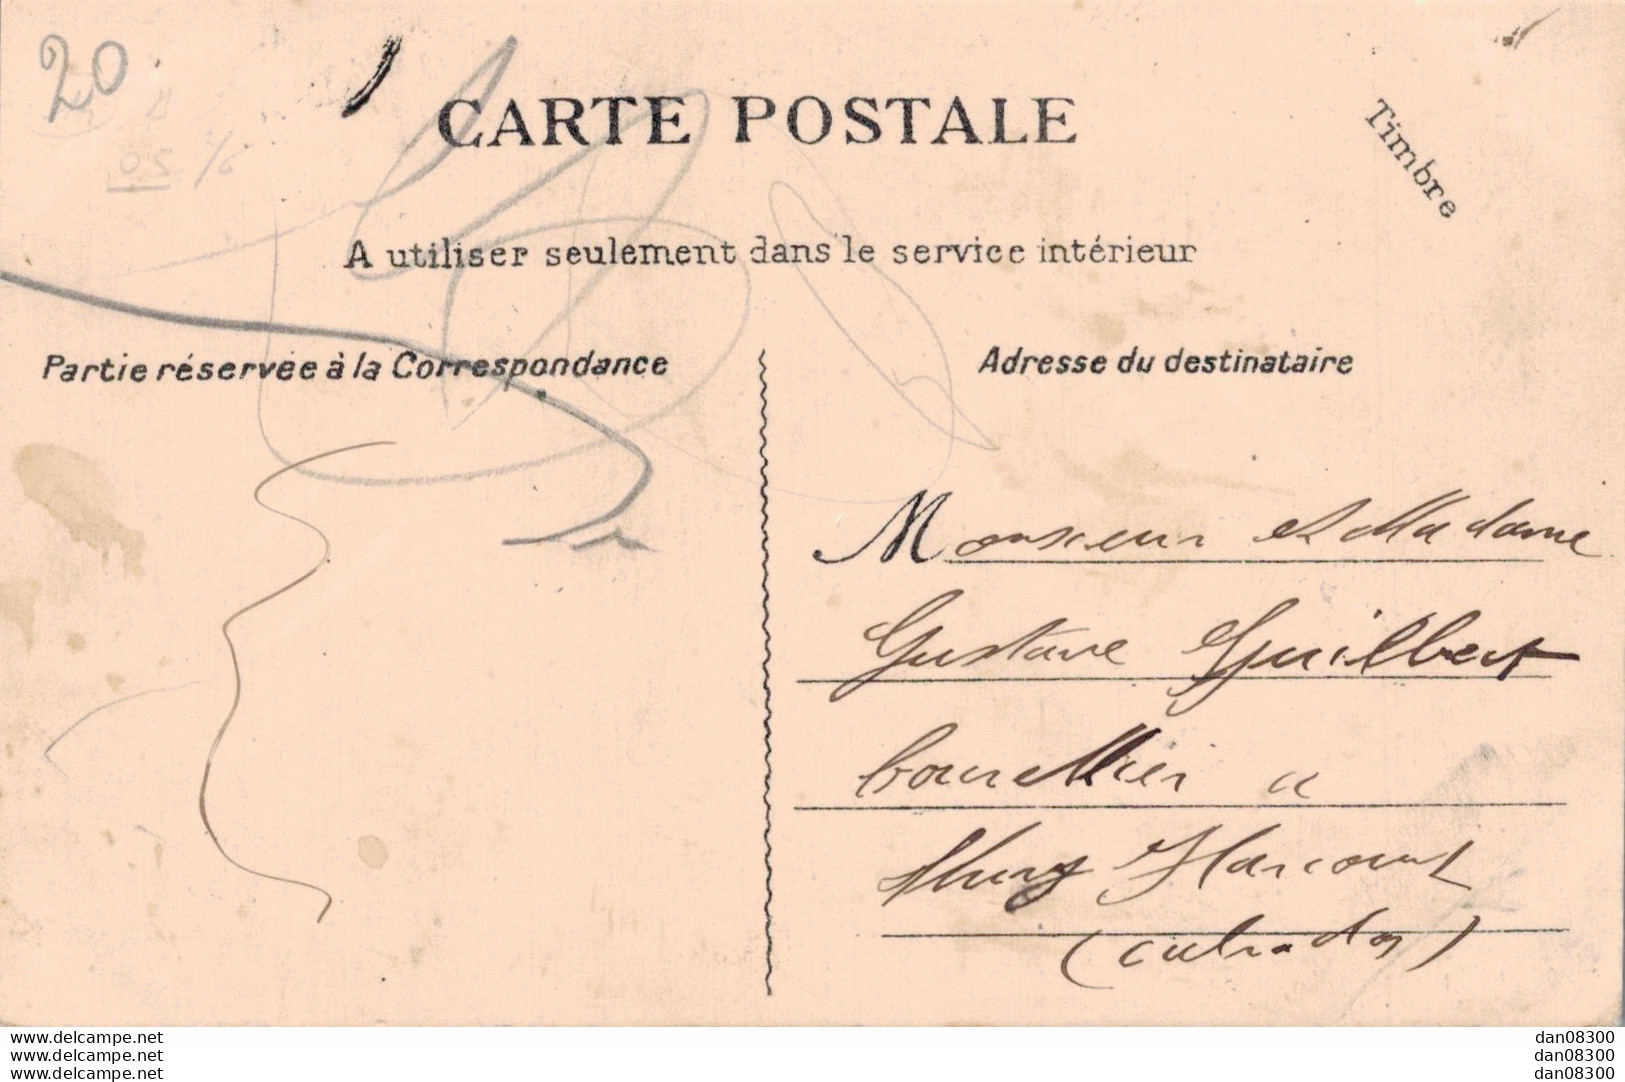 20
CARTE POSTALE
Timbre
A utiliser seulement dans le service intérieur
Partie réservée à la Correspondance
Adresse du destinataire
Monsieur et Madame
Gustave Guilbert
bourellier a
Thury Harcourt
(Calvados)
www.delcampe.net
www.delcampe.net
www.delcampe.net
dan08300
dan08300
dan08300